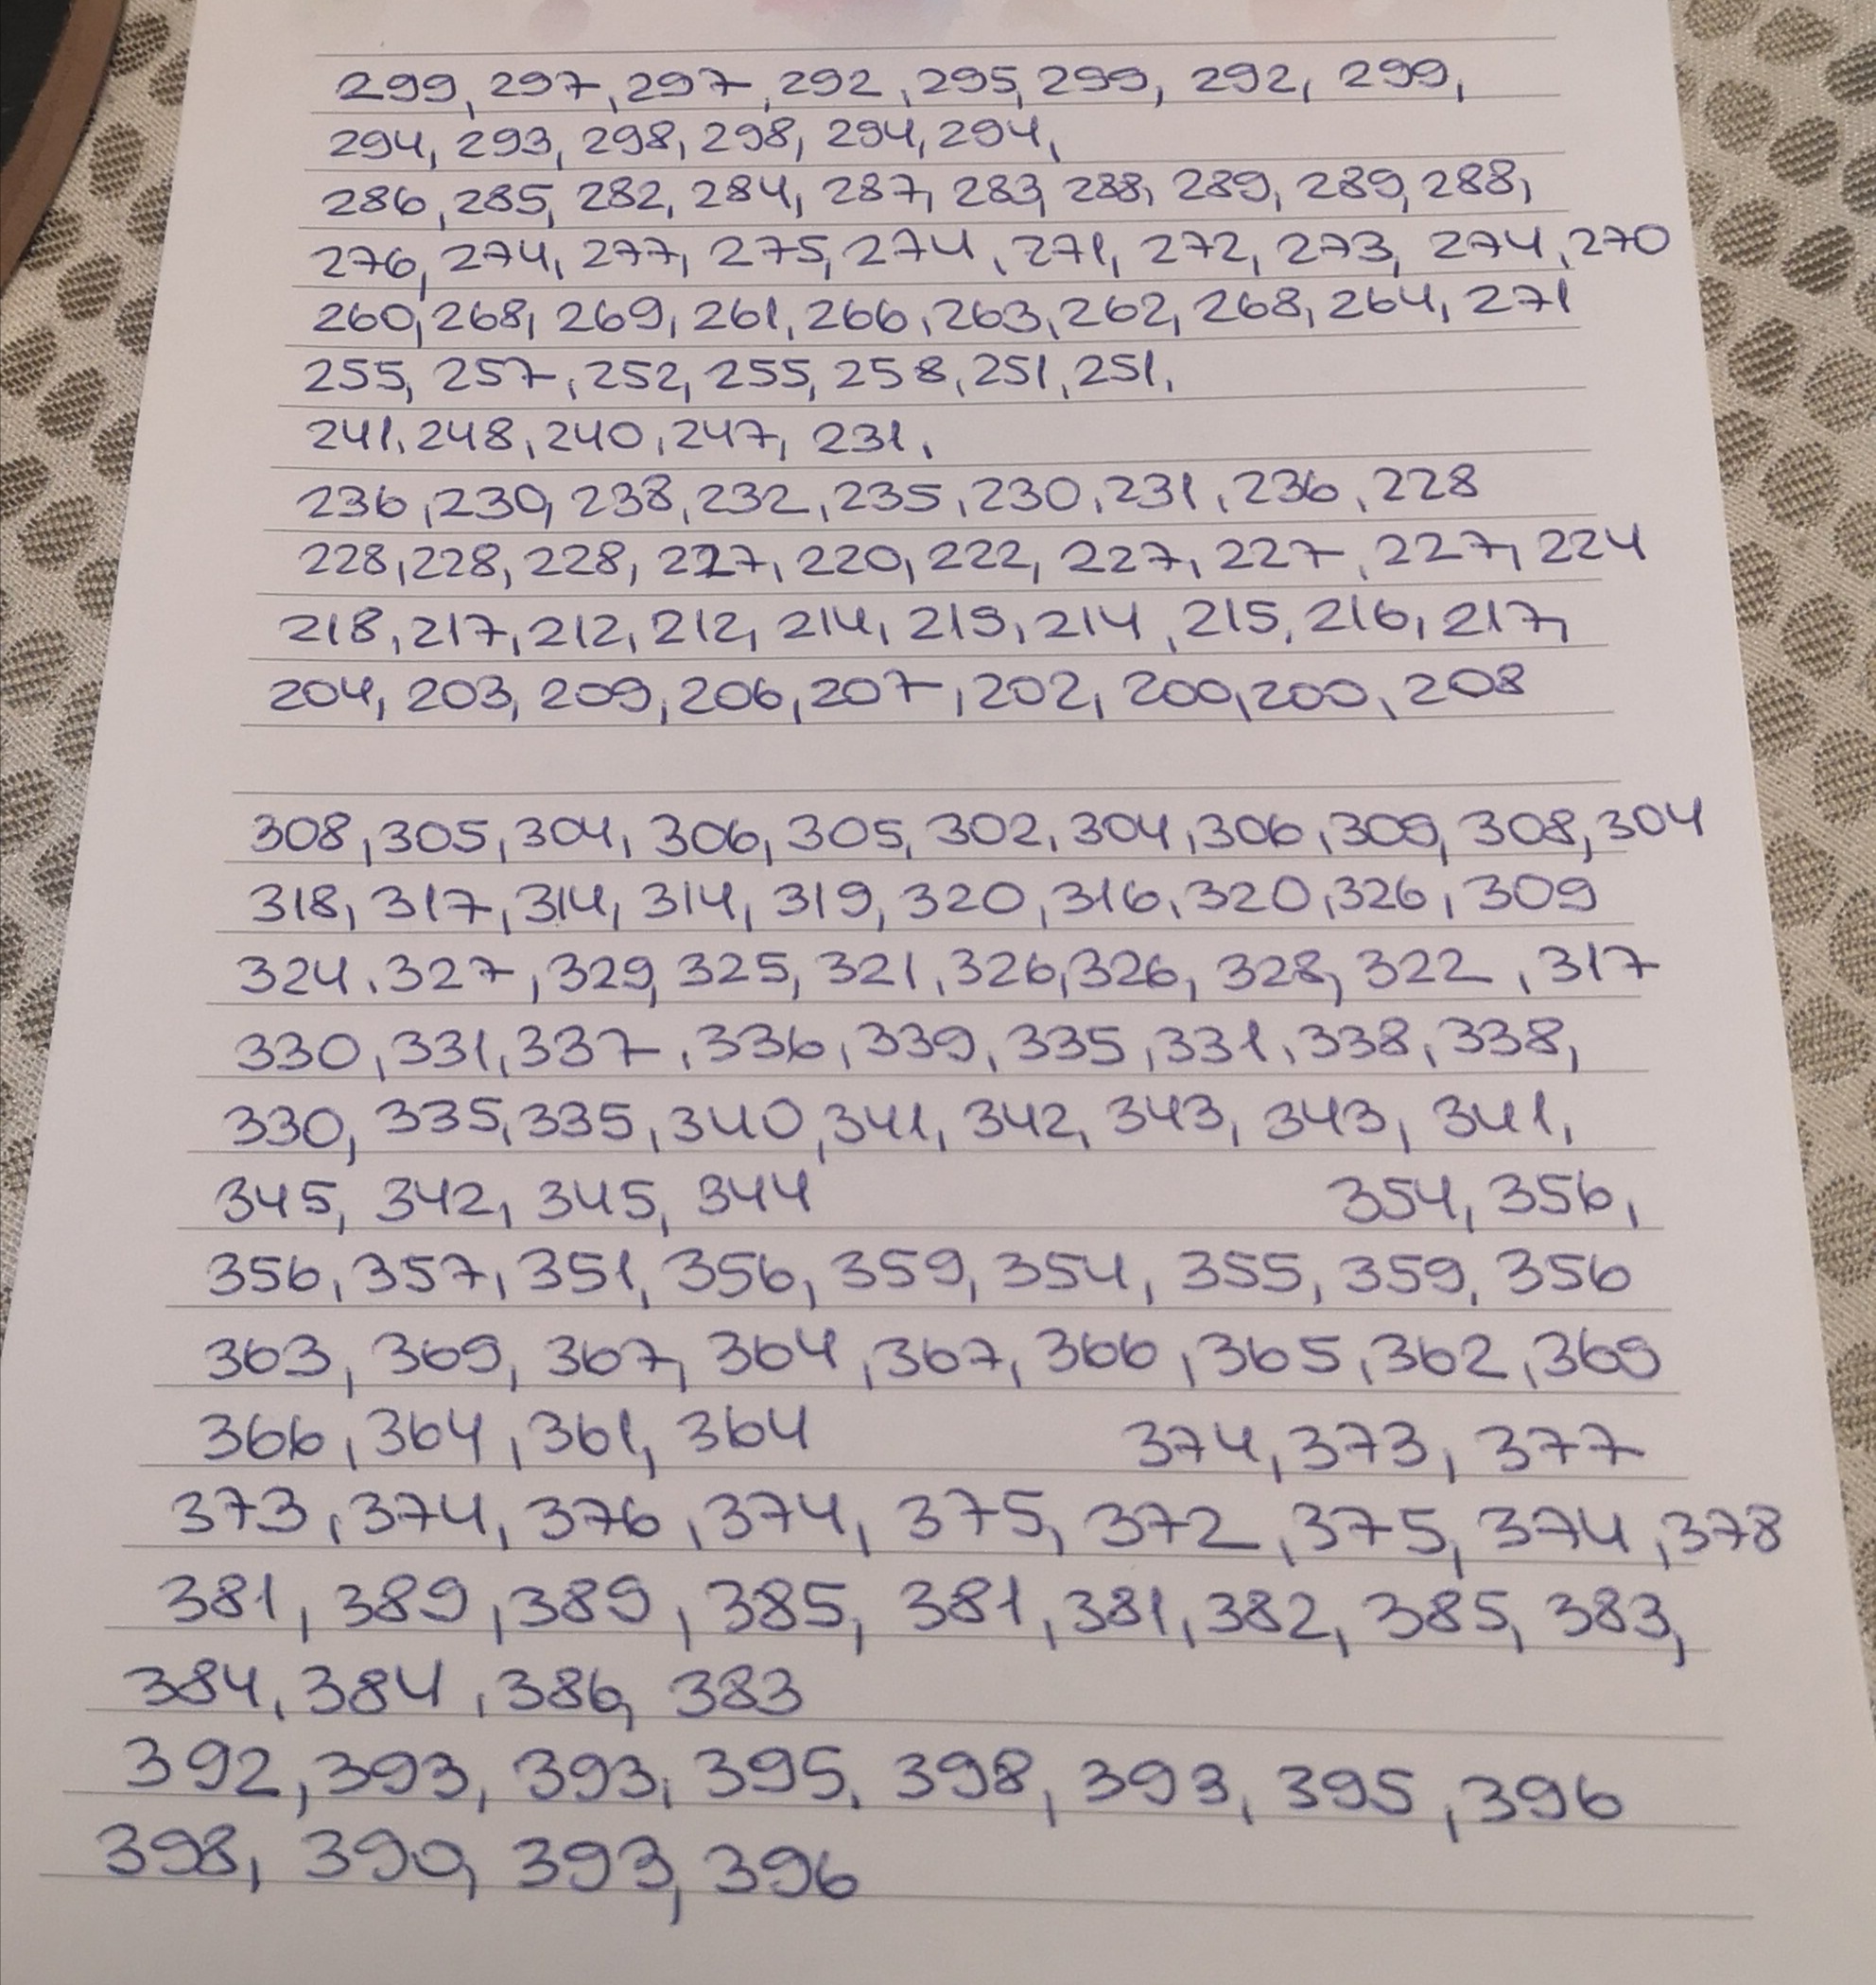 299, 297, 297, 292, 295, 299, 292, 299,
294, 293, 298, 298, 294, 294,
286, 285, 282, 284, 287, 283, 288, 289, 289, 288,
276, 274, 277, 275, 274, 271, 272, 273, 274, 270
260, 268, 269, 261, 266, 263, 262, 268, 264, 271
255, 257, 252, 255, 258, 251, 251,
241, 248, 240, 247, 231,
236, 230, 238, 232, 235, 230, 231, 236, 228
228, 228, 228, 227, 220, 222, 227, 227, 227, 224
218, 217, 212, 212, 214, 219, 214, 215, 216, 217,
204, 203, 209, 206, 207, 202, 200, 200, 208
308, 305, 304, 306, 305, 302, 304, 306, 309, 308, 304
318, 317, 314, 314, 319, 320, 316, 320, 326, 309
324, 327, 329, 325, 321, 326, 326, 328, 322, 317
330, 331, 337, 336, 339, 335, 331, 338, 338,
330, 335, 335, 340, 341, 342, 343, 343, 341,
345, 342, 345, 344 354, 356,
356, 357, 351, 356, 359, 354, 355, 359, 356
363, 369, 367, 364, 367, 366, 365, 362, 369
366, 364, 361, 364 374, 373, 377
373, 374, 376, 374, 375, 372, 375, 374, 378
381, 389, 389, 385, 381, 381, 382, 385, 383,
384, 384, 386, 383
392, 393, 393, 395, 398, 393, 395, 396
398, 390, 393, 396